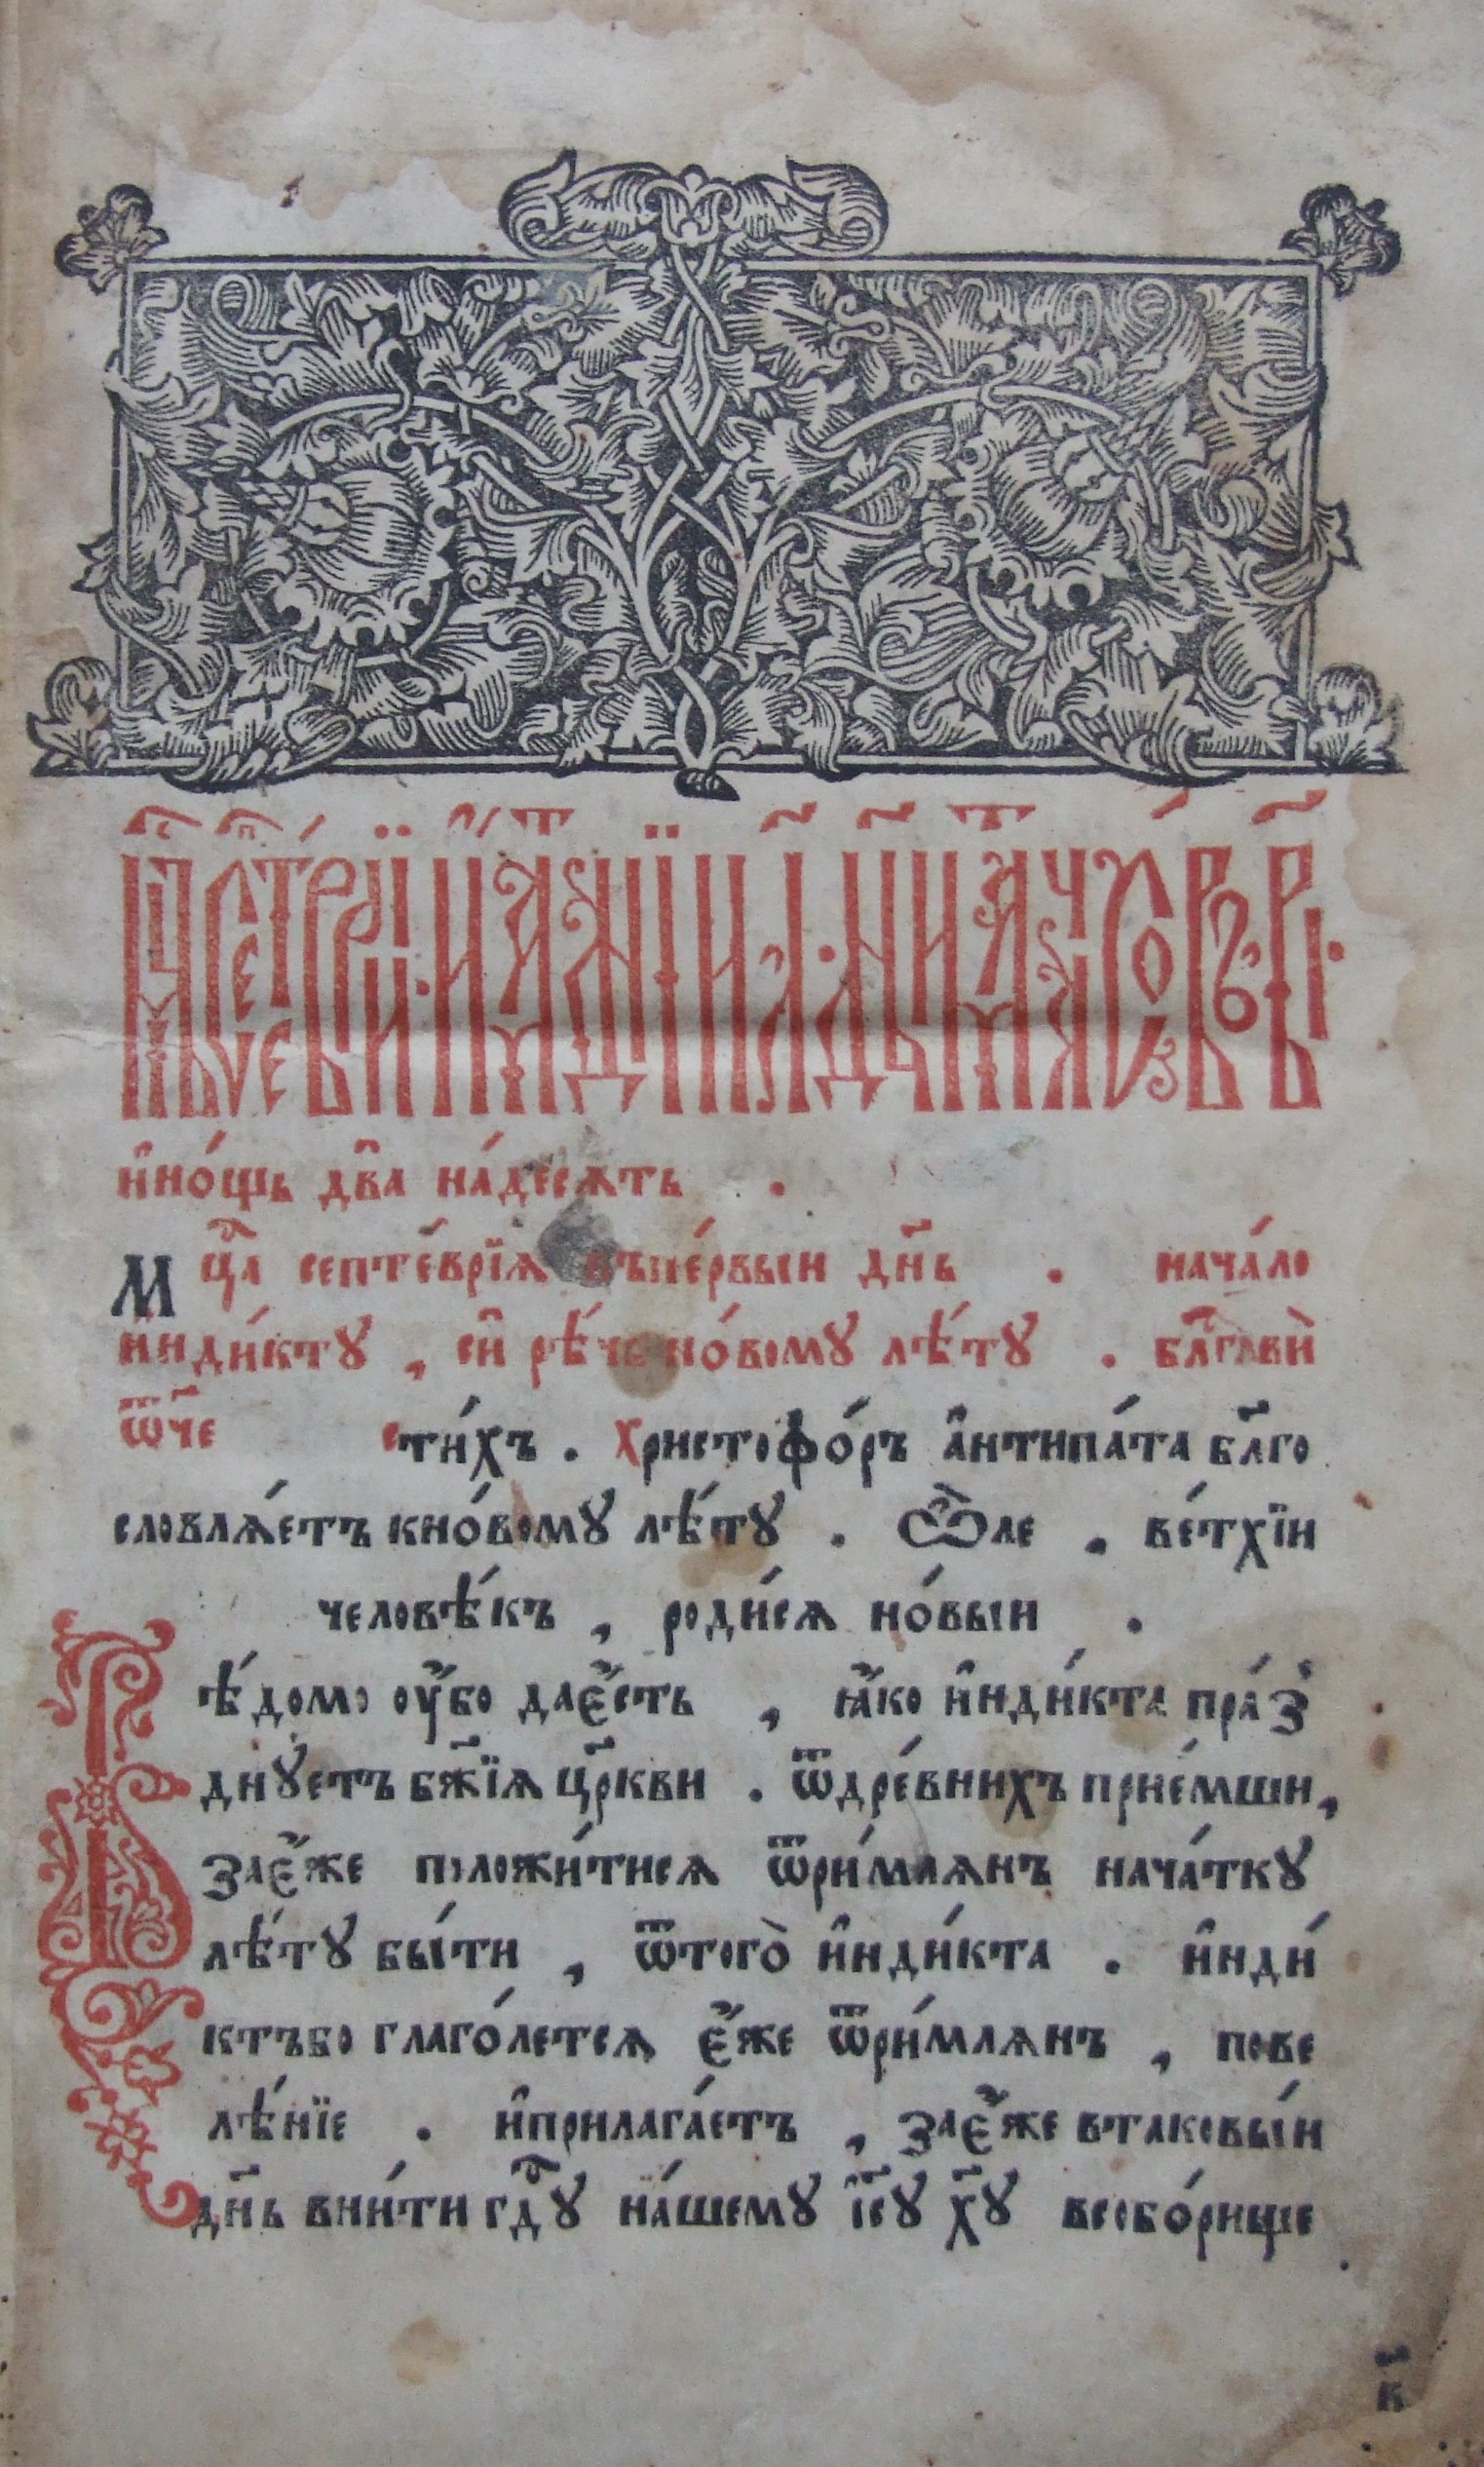 и҆но́щь два̀ на́десѧть .
мц҃а септе́врїѧ въпе́рвыи дн҃ь . нача́ло
и҆нди́кту , си̑рѣ́чь но́вому лѣ́ту . бл҃гослови̇̀
ѿч҃е сти́хъ . христофо́ръ а҆нтипа́та бл҃го
словлѧ́етъ кно́вому лѣ́ту . ѽле , ве́тхїи
человѣ́къ , роди́сѧ но́выи .
Вѣ́домо оу҆́бо дає҆́сть , ꙗ҆́ко и҆нди́кта пра́з
днꙋетъ бж҃їѧ цр҃кви . ѿдре́внихъ прие́мши ,
зає҆́же положи́тисѧ ѿри́млѧнъ нача́тку
лѣ́ту бы́ти , ѿтого̀ и҆нди́кта . и҆нди́
ктъбо глаго́летсѧ є҆́же ѿри́млѧнъ , пове
лѣ́нїе . и҆прилага́етъ , зає҆́же втаковы́и
дн҃ь вни́ти гдⷭ҇у на́шему і҆с҃у х҃у всебо́рище
в҃